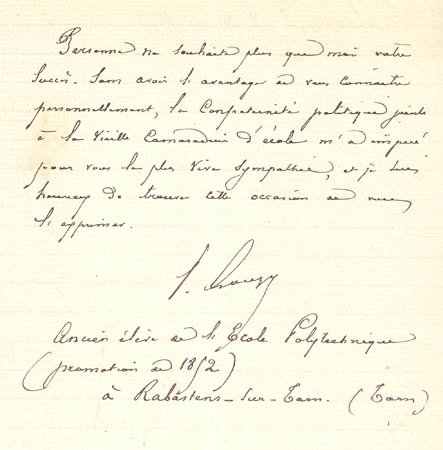 Personne ne souhaite plus que moi votre
succès. Sans avoir l'avantage de vous connaître
personnellement, la Confraternité politique jointe
à la vieille Camaraderie d'école m'a inspiré
pour vous la plus vive sympathie, et je suis
heureux de trouver cette occasion de vous
l'exprimer.
Ancien élève de l'Ecole Polytechnique
(promotion de 1852)
à Rabastens-sur-Tarn. (Tarn)